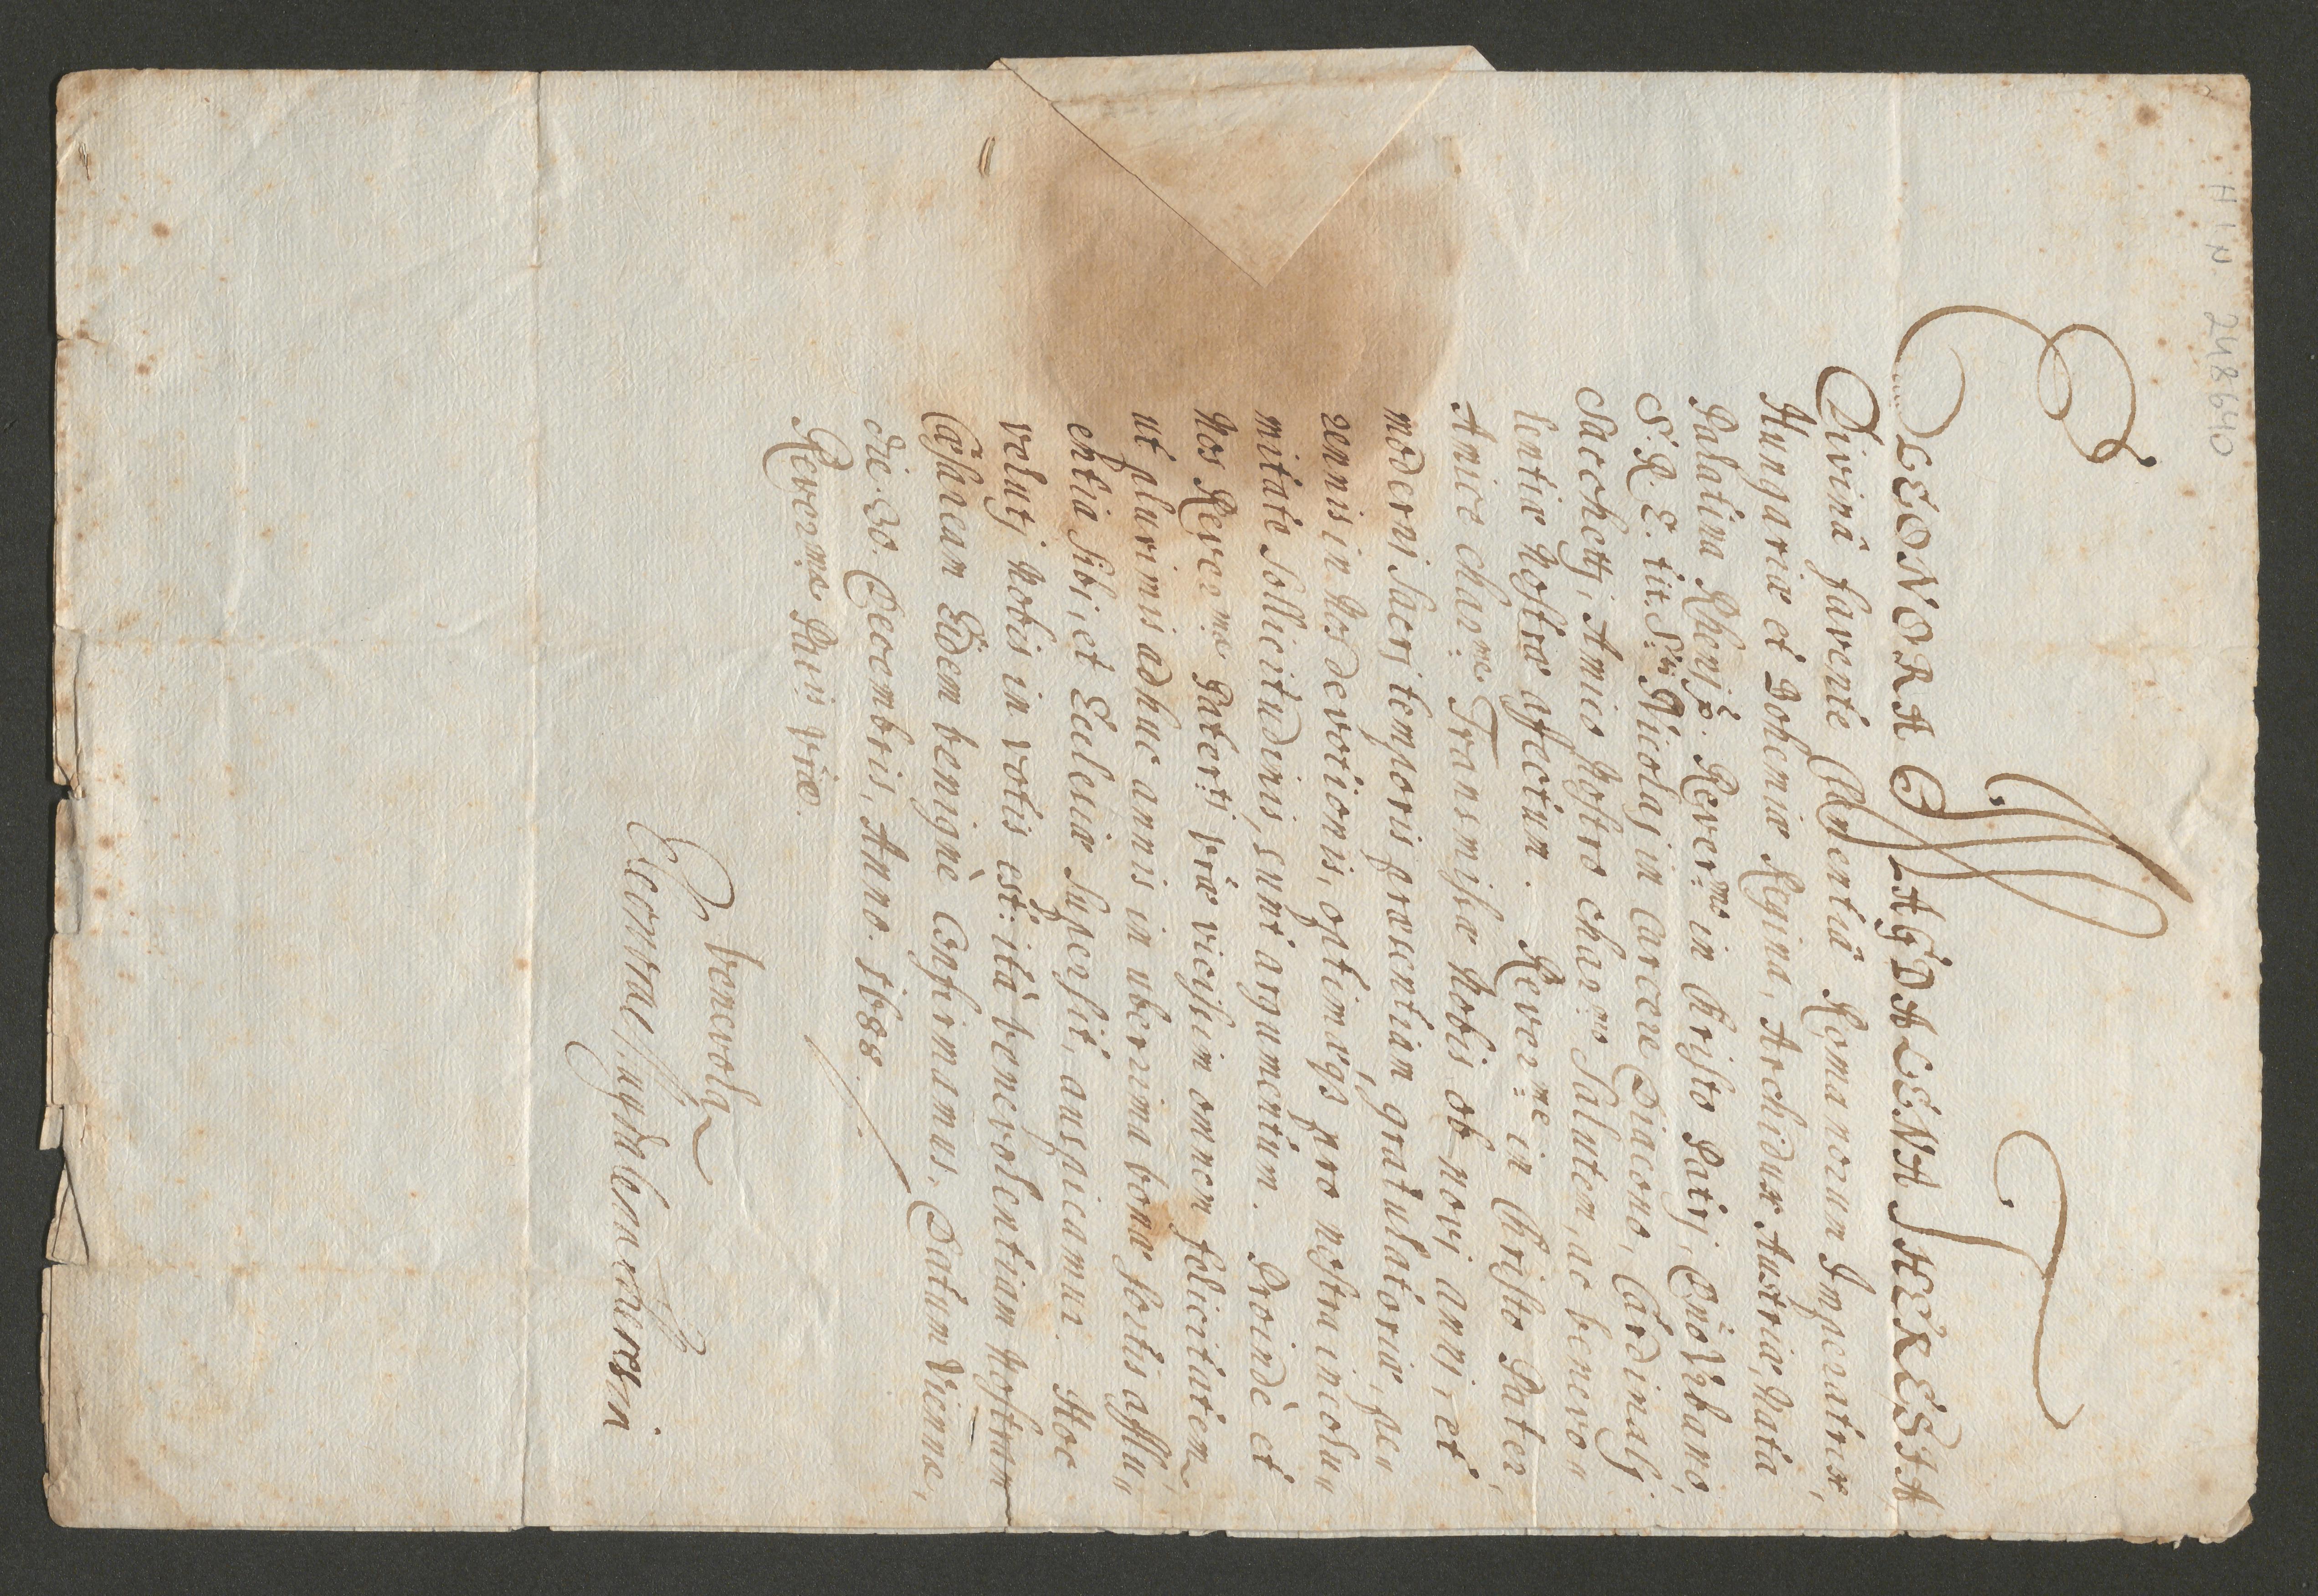 H.I.N. 248640
ELEONORA MAGDALENA THERESIA
Divinâ favente Clementiâ Romanorum Imperatrix,
Hungariæ et Bohemiæ Regina, Archidux Austriæ, Nata
Palatina Rhenj &c. Rever:mo in Christo Patrj, Dnō Urbano,
S. R. E. tit. S:ti Nicolaj in Carcere Diacono, Cardinalj
Sacchettj, Amico Nostro char:mo Salutem, ac benevo„
lentiæ Nostræ affectum. Rever:me in Christo Pater,
Amice char:me Transmissæ Nobis ob novj annj, et
moderni sacrj temporis præsentiam gratulatoriæ, pe„
rennis in Nos devotionis, optimæqȝ pro nostra incolu„
mitate sollicitudinis, sunt argumentum. Proindè et
Nos Rever:mæ Pater:tj vræ vicissim omnem felicitatem,
ut plurimis adhuc annis in uberrima bonæ sortis afflu„
entia sibi, et Ecclesiæ supersit, auspicamur. Hoc
velutj Nobis in votis est: ità benevolentiam Nostram
Cæsaream Eidem benignè confirmamus. Datum Viennæ,
die 30. Decembris, Anno. 1688.
Rever:mæ Pnis vræ.
benevola
Eleonora Magdalena Theresia